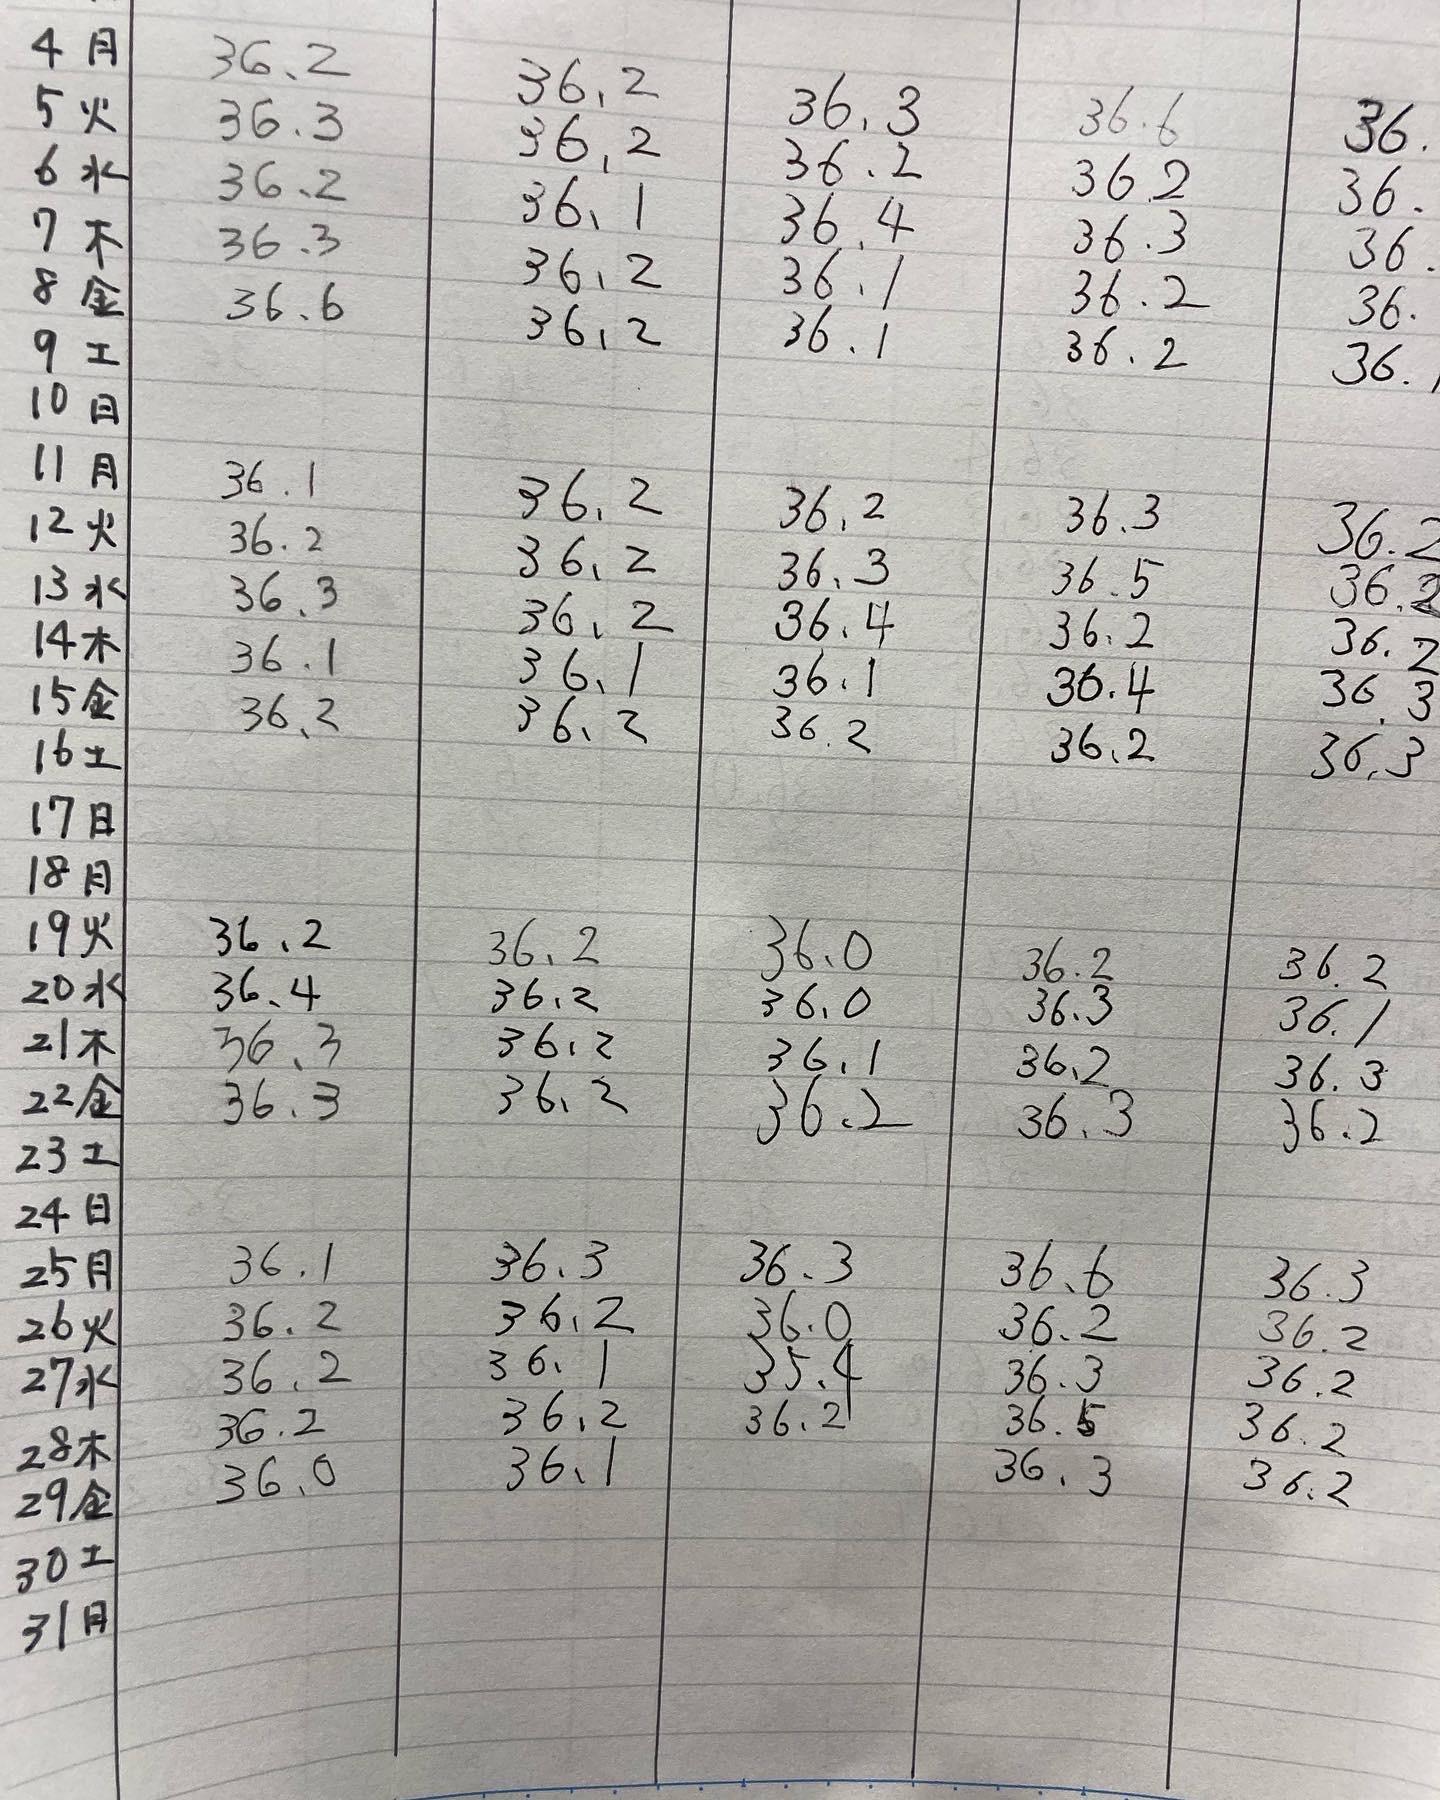 4 月 36.2 36.2 36.3 36.6 36.
5 火 36.3 36.2 36.2 36.2 36.
6 水 36.2 36.1 36.4 36.3 36.
7 木 36.3 36.2 36.1 36.2 36.
8 金 36.6 36.2 36.1 36.2 36.1
9 土
10 日
11 月 36.1 36.2 36.2 36.3 36.2
12 火 36.2 36.2 36.3 36.5 36.2
13 水 36.3 36.2 36.4 36.2 36.2
14 木 36.1 36.1 36.1 36.4 36.3
15 金 36.2 36.2 36.2 36.2 36.3
16 土
17 日
18 月
19 火 36.2 36.2 36.0 36.2 36.2
20 水 36.4 36.2 36.0 36.3 36.1
21 木 36.3 36.2 36.1 36.2 36.3
22 金 36.3 36.2 36.2 36.3 36.2
23 土
24 日
25 月 36.1 36.3 36.3 36.6 36.3
26 火 36.2 36.2 36.0 36.2 36.2
27 水 36.2 36.1 35.4 36.3 36.2
28 木 36.2 36.2 36.2 36.5 36.2
29 金 36.0 36.1 36.3 36.2
30 土
31 日